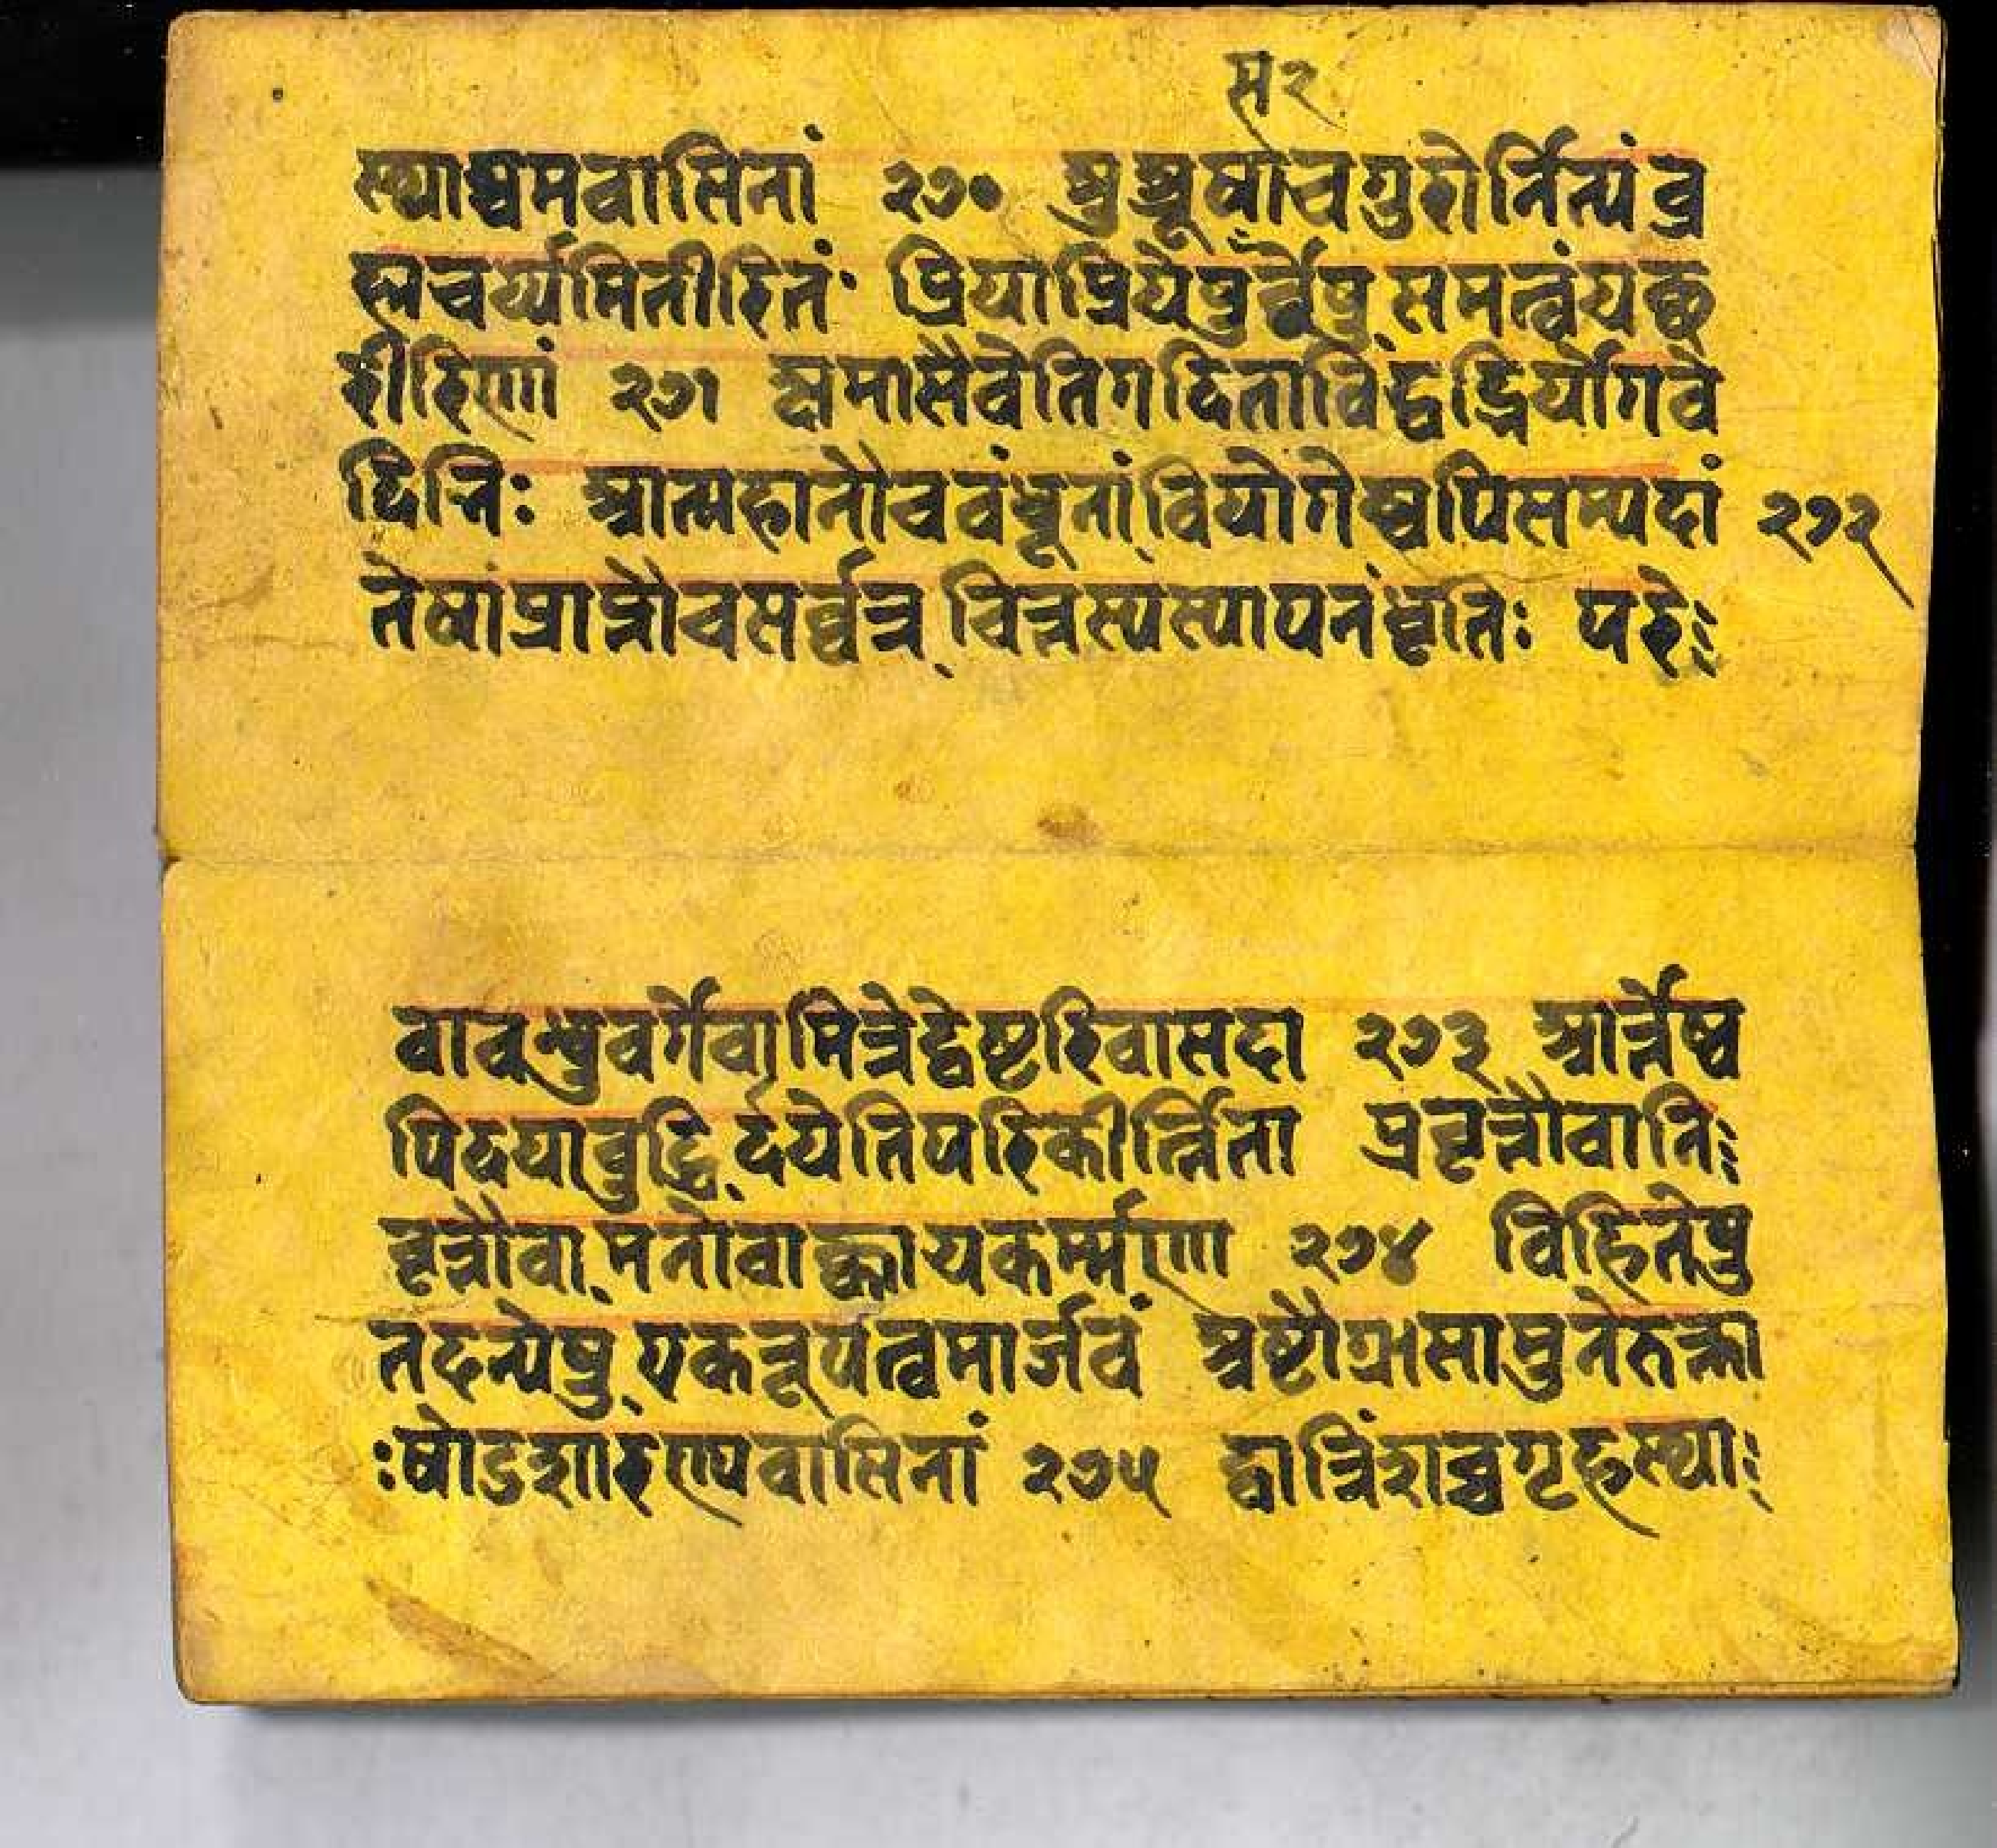 स२
स्थाश्रमवासिनां २७० शुश्रूषाचगुरोर्नित्यंब्र
ह्मचर्य्यमितीरितं प्रियाप्रियेषुर्वेषुसमत्वंयछ
रीरिणां २७१ क्षमासैवेतिगदिताविद्वद्भिर्योगवे
दिभिः आत्महानौचवंधूनांवियोगेष्वपिसम्पदां २७२
तेषांप्राप्तौचसर्व्वत्रचित्तस्यस्थापनंधृतिः परे
वावन्धुवर्गेवामित्रेद्वेष्टरिवासदा २७३ आर्त्तेष्व
पिदयाबुद्धिर्दयेतिपरिकीर्त्तिता प्रवृत्तौवानि
वृत्तौवामनोवाक्कायकर्म्मणा २७४ विहितेषु
तदन्येषुएकरूपत्वमार्जवं अष्टौग्रासामुनेरुक्ता
ःषोडशारण्यवासिनां २७५ द्वात्रिंशच्चगृहस्था